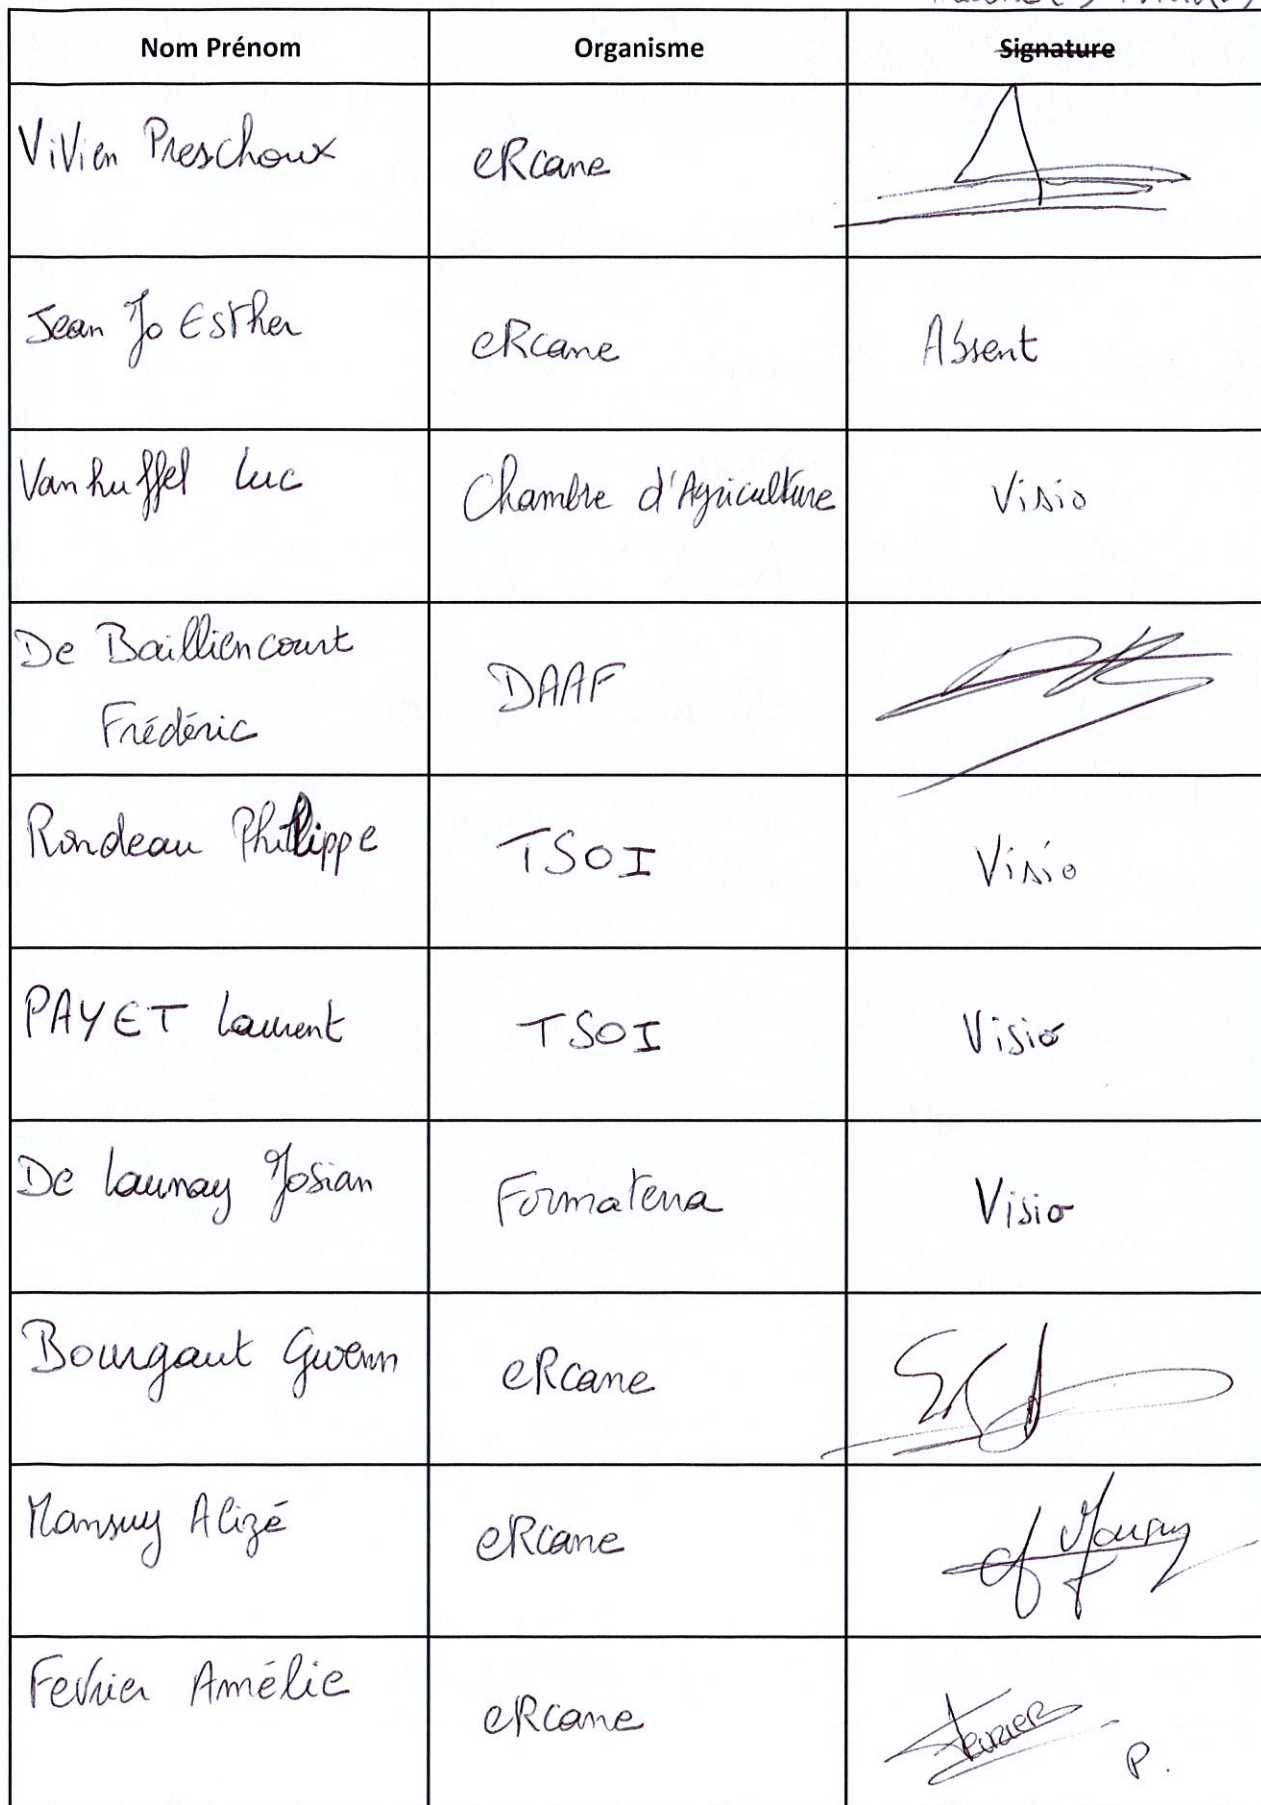 Nom Prénom Organisme Signature
Vivien Preschoux eRcane
Jean Jo Esther eRcane Absent
Vanhuffel Luc Chambre d'Agriculture Visio
De Bailliencourt
Frédéric DAAF
Rondeau Philippe TSOI Visio
PAYET Laurent TSOI Visio
De Launay Josian Formaterra Visio
Bourgaut Gwenn eRcane
Mansuy Alizé eRcane Mansuy
Fevrier Amélie eRcane FEVRIER
P.